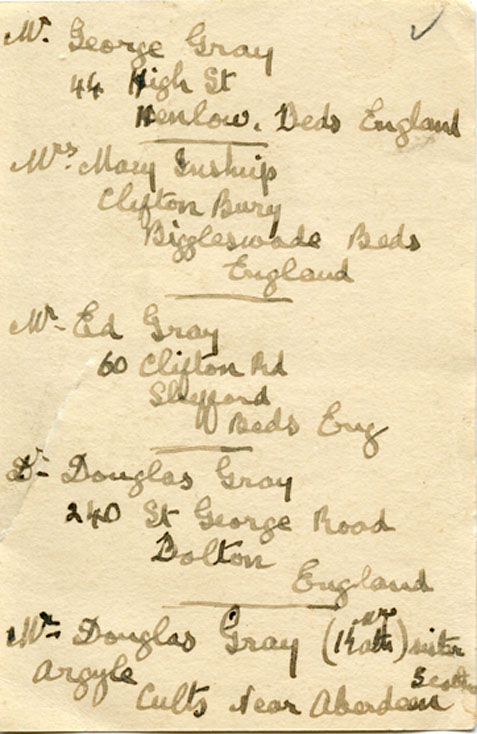 Mr. George Gray
44 High St
Henlow. Beds England
Mrs. Mary Inskip
Clifton Bury
Biggleswade Beds
England
Mr Ed Gray
60 Clifton Rd
Shefford
Beds Eng
Dr Douglas Gray
240 St George Road
Bolton
England
Mr Douglas Gray ( ) sister
Argyle
Cults Near Aberdeen